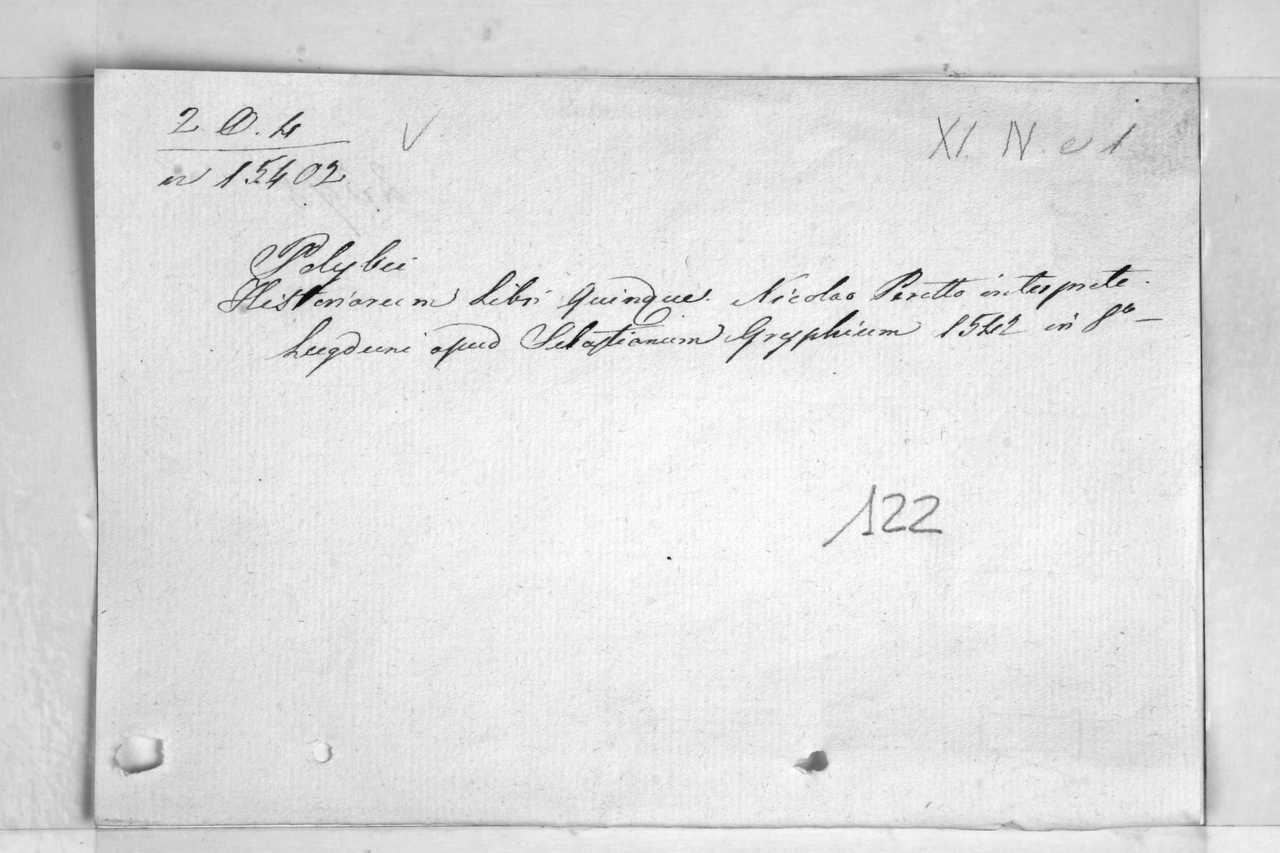 2 D. 4 V XI. N. e 1
n 15402
Polybii
Historiarum Libri quinque. Nicolao Perotto interprete.
Lugduni apud Sebastianum Gryphium 1542 in 8º
122